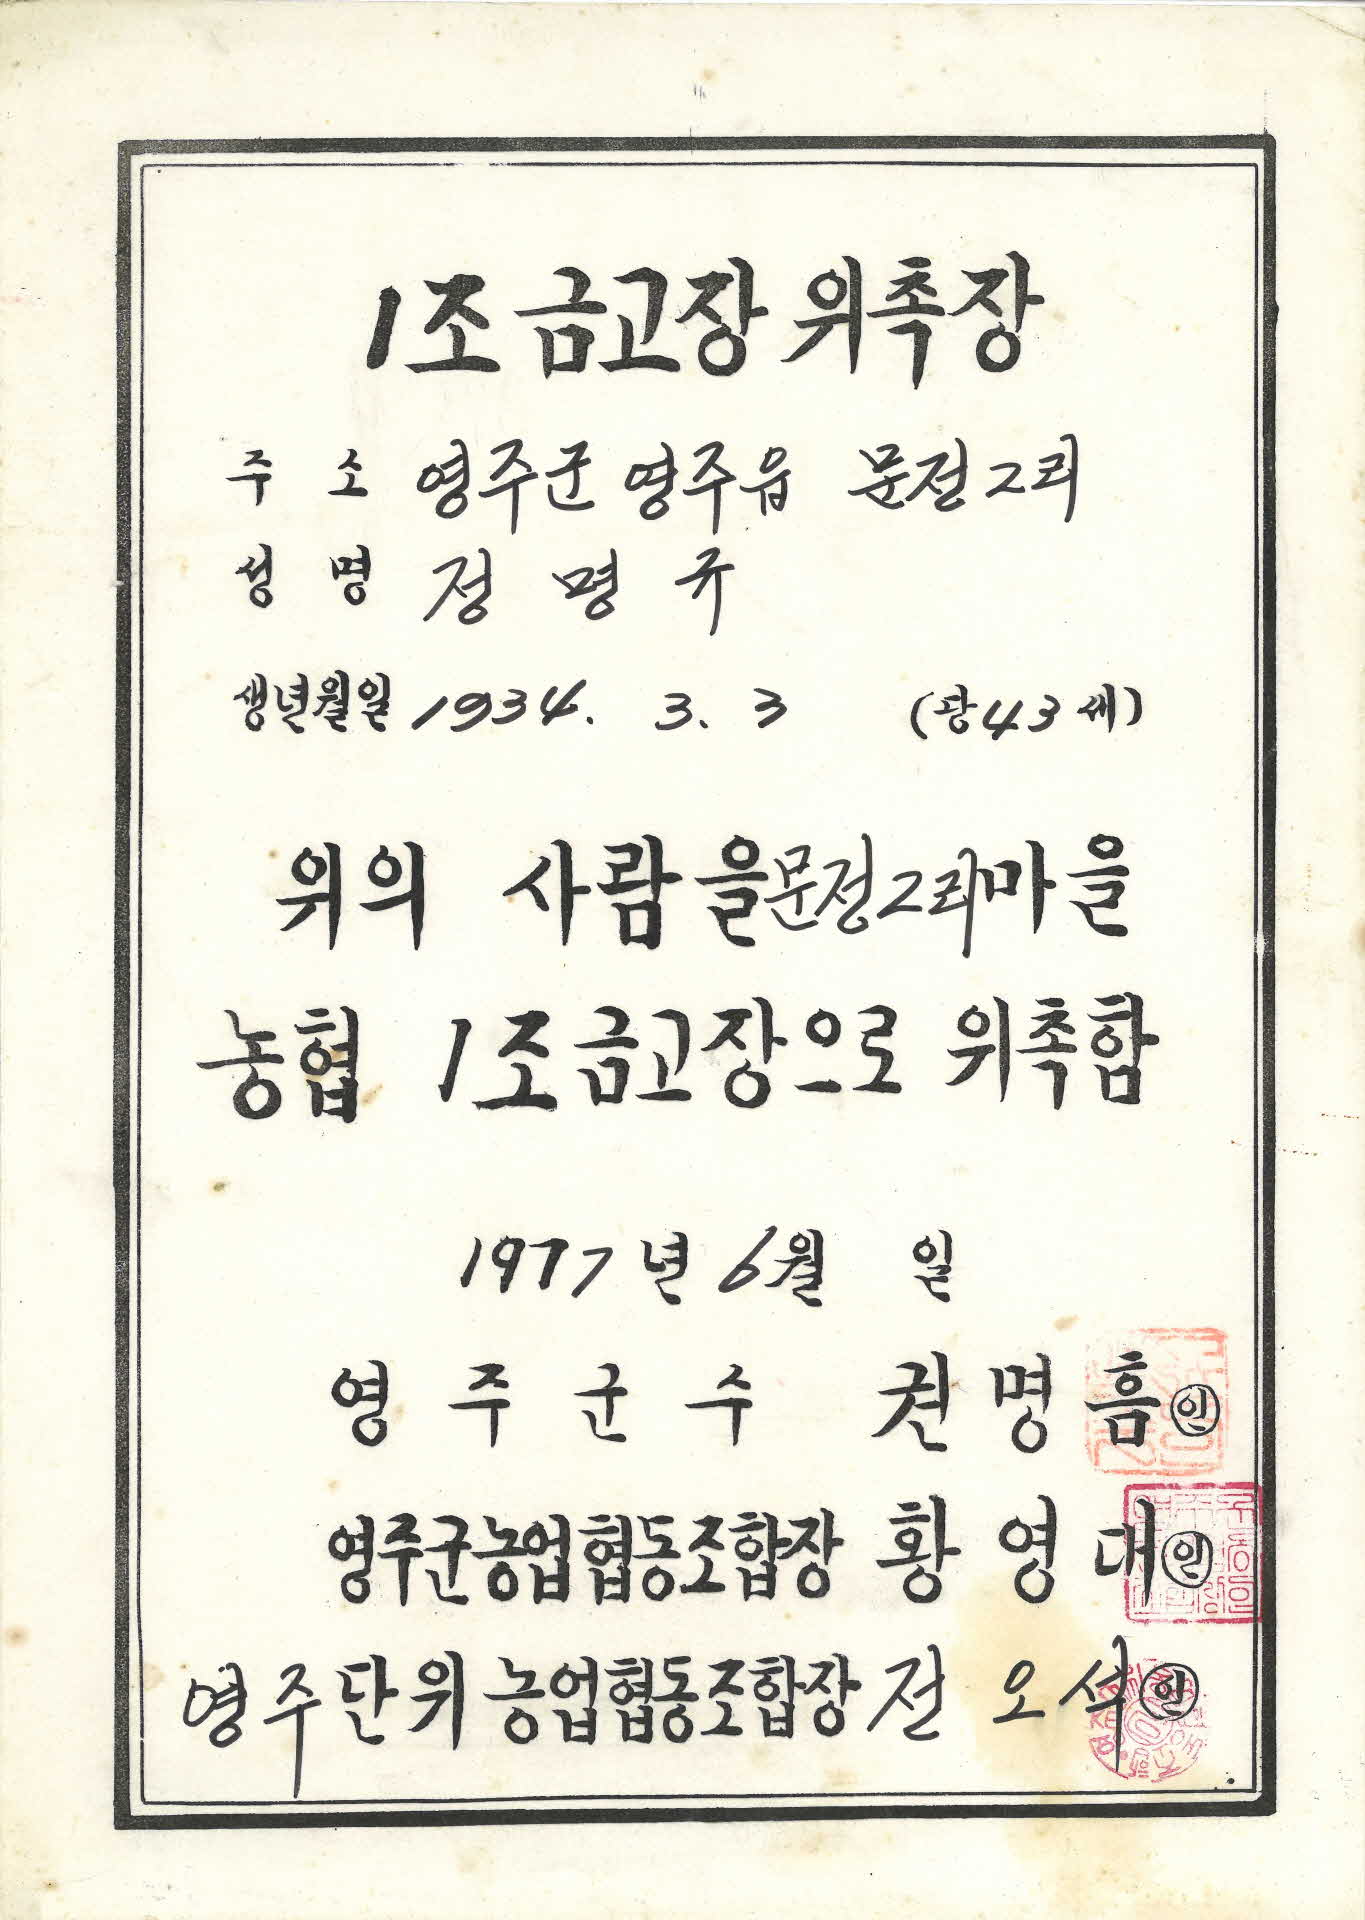 1조 금고장 위촉장
주 소 영주군 영주읍 문정2리
성 명 정 명 규
생년월일 1934. 3. 3 (당43세)
위의 사람을 문정2리마을
농협 1조금고장으로 위촉함
1977년 6월 일
영 주 군 수 권 명 흠 인
영주군농업협동조합장 황 영 대 인
영주단위농업협동조합장 전 오 석 인